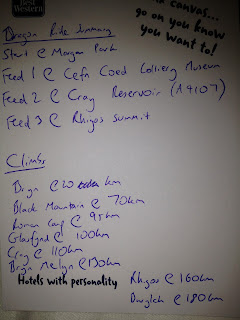 Best
Western
canvas...
go on you know
you want to!
Dragon Ride Summary
Start @ Margam Park
Feed 1 @ Cefn Coed Colliery Museum
Feed 2 @ Cray Reservoir (A4107)
Feed 3 @ Rhigos summit
Climbs
Bryn @ 20 km
Black Mountain @ 70km
@ 95km
@ 100km
Cray @ 110km
Bryn Melyn @ 130km
Hotels with personality
Rhigos @ 160km
Bwlch @ 180km